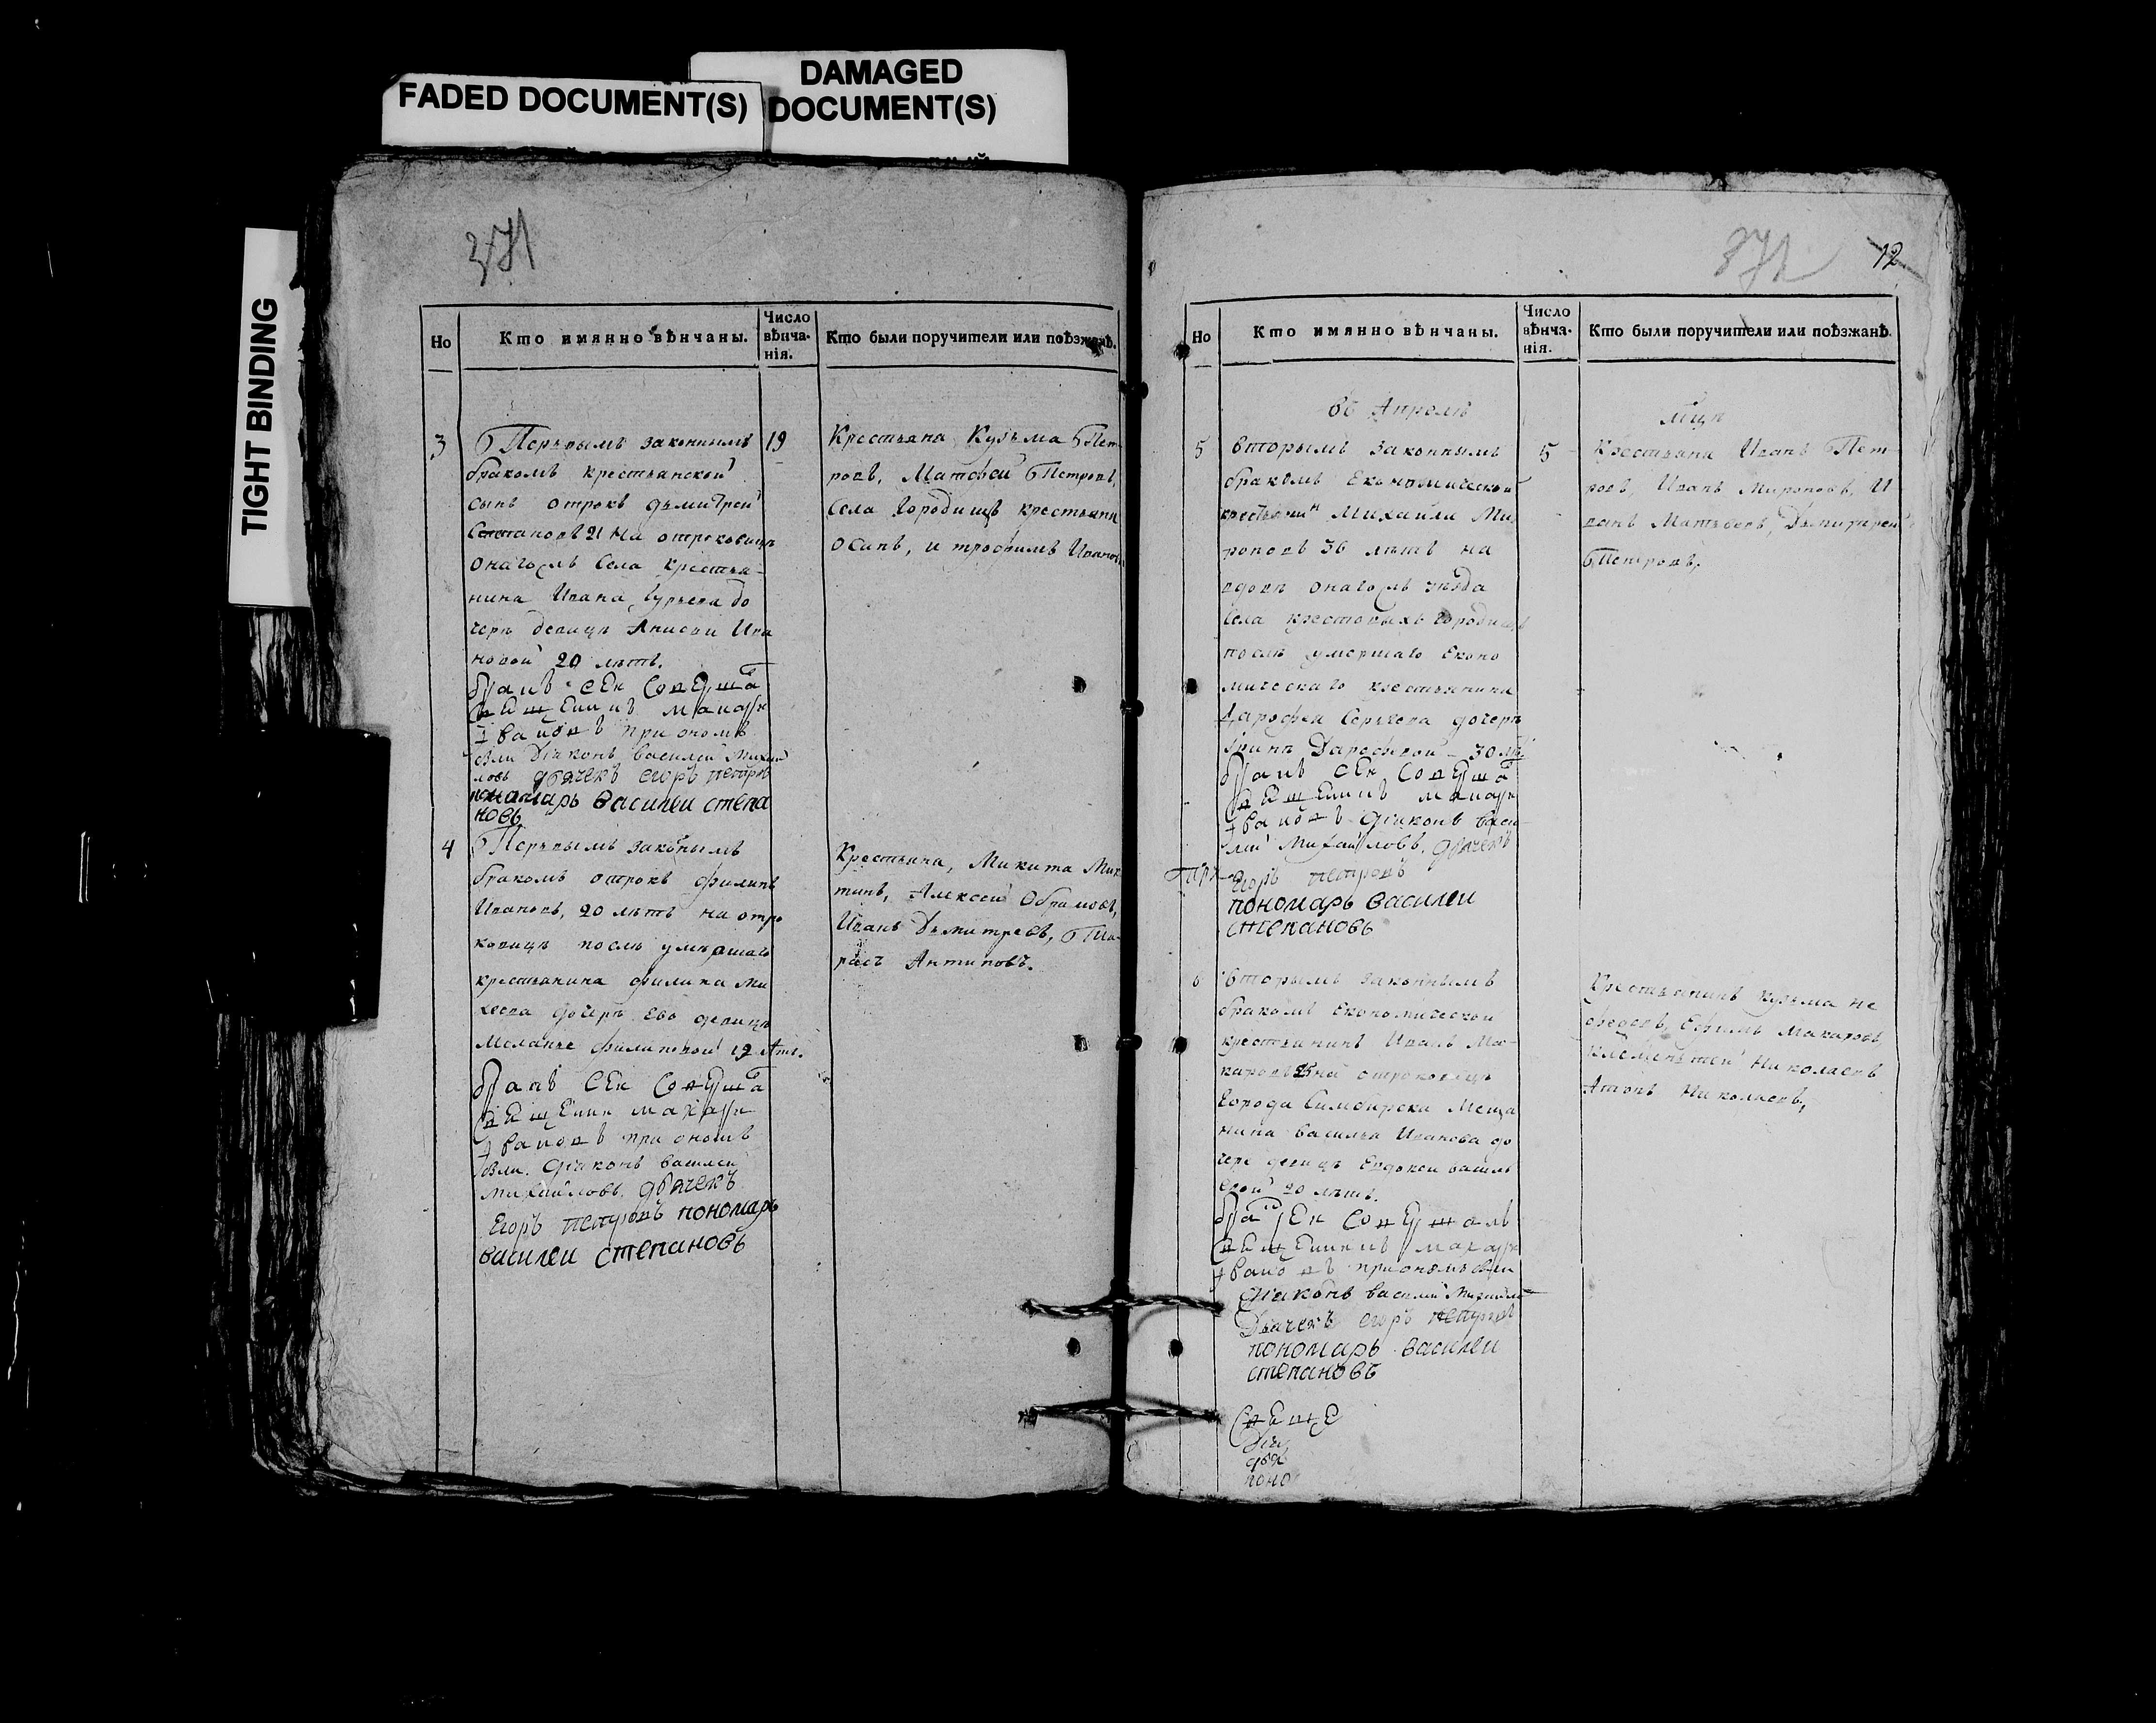 DAMAGED
DOCUMENT(S)
FADED DOCUMENT(S)
TIGHT BINDING
371
Но
Кто имянно вѣнчаны.
Число
вѣнча-
нія.
Кто были поручители или поѣзжанѣ.
3
Перьвымъ законнымъ
бракомъ крестьянской
сынъ отрокъ дьмитрей
Степановъ 21 на отроковицѣ
онагожъ села крестья-
нина Ивана Гурьева до
черѣ девицѣ Анисьи Ива
новой 20 лѣтъ.
бракъ сей совѣрша
священникъ макарі
Ивановъ при ономъ
были Дїаконъ Василей Михай
ловъ дьячекъ егоръ петровъ
пономарь василеи степа
новъ
19
Крестьяна Кузьма Пет
ровъ, Матфей Петровъ,
села Городищъ крестьяни
Осипъ, и трофимъ Ивановы
4
Перьвымъ законымъ
бракомъ отрокъ филипъ
Ивановъ, 20 лѣтъ на отро
ковицѣ послѣ умершаго
крестьянина филипа Ми
хеева дочерѣ ево девицѣ
Меланье филиповой 19 лѣтъ.
бракъ сей совѣрша
священик макарі
Ивановъ при ономъ
были. дїаконъ василей
михайловъ. дьячекъ
Егоръ петровъ пономарь
василеи степановъ
Крестьяна, Микита Мик
тинъ, Алексей Обрамовъ,
Иванъ Дьмитревъ, Та-
расъ Антиповъ.
12
Но
Кто имянно вѣнчаны.
Число
вѣнча-
нія.
Кто были поручители или поѣзжанѣ.
въ Апрелѣ
5
вторымъ законнымъ
бракомъ Економической
крестьянин Михайла Ми
роновъ 36 лѣтъ на
вдовѣ онагожъ уѣзда
села крестовыхъ Городищъ
послѣ умершаго Еконо
мическаго крестьянина
Дарофея Сергеева дочерѣ
Иринѣ Дарофеевой 30 лѣ
бракъ сей совѣрша
священикъ макарі
Ивановъ дїаконъ васи
лей михайловъ. дьячекъ
Егоръ петровъ
пономарь василеи
степановъ
5
Крестьяна Иванъ Пет
ровъ, Иванъ Мироновъ, И
ванъ Матвеевъ, Дьмитрей
Петровъ,
6
Вторымъ законнымъ
бракомъ Економической
крестьянинъ Иванъ Ма-
каровъ 25 на отроковицѣ
Города Симбирска Меща
нина василья Иванова до
чере девицѣ Евдокеи василь
евой 20 лѣтъ.
бракъ сей совѣршалъ
священникъ макарі
Ивановъ при ономъ были
дїаконъ василей Михайло
Дьячекъ егоръ петровъ
пономарь василеи
степановъ
Крестьянинъ кузьма не
федовъ, Ефимъ Макаровъ
клементей Николаевъ
Антонъ Николаевъ,
свяще
діа
дья
поно